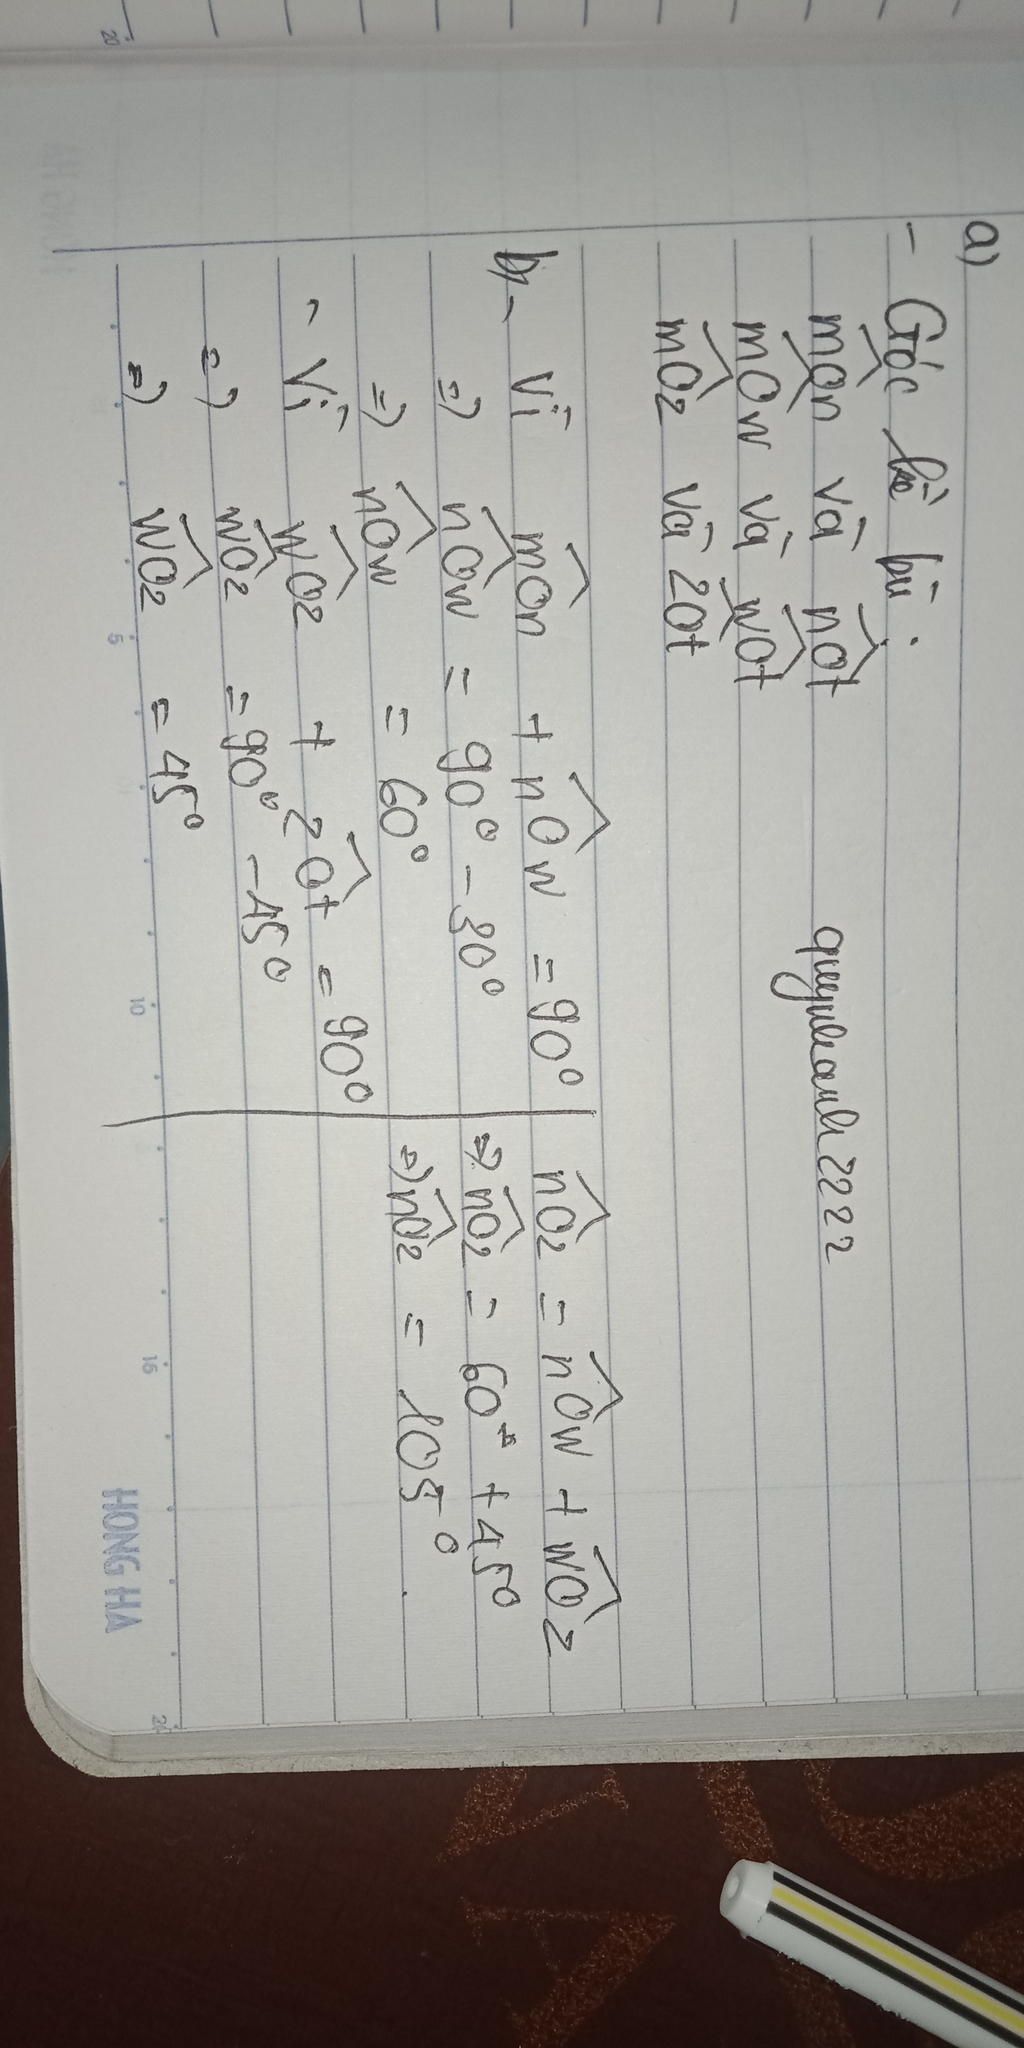 a)
- Góc kề bù:
mOn và nOt
quynhanh2222
mOw và wOt
mOz và zOt
b, - Vì mOn + nOw = 90°
=> nOw = 90° - 30°
=> nOw = 60°
- Vì wOz + zOt = 90°
=> wOz = 90° - 45°
=> wOz = 45°
nOz = nOw + wOz
=> nOz = 60° + 45°
=> nOz = 105°.
HONG HA
5
10
15
20